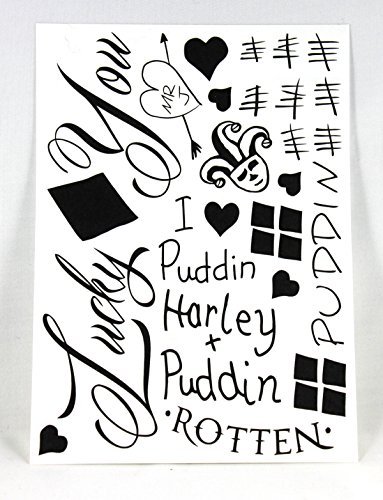 Lucky You
MR
J
I
Puddin
Harley
+
Puddin
PUDDIN
·ROTTEN·